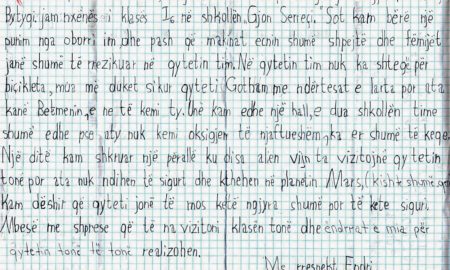 Bytyqi, jam nxënës i klasës I6 në shkollën "Gjon Sereçi". Sot kam bërë një
punim nga oborri im, dhe pash që makinat ecnin shumë shpejtë dhe fëmijët
janë shumë të rrezikuar në qytetin tim. Në qytetin tim nuk ka shtegë për
biçikleta, mua më duket sikur qyteti Gotham me ndërtesat e larta por ata
kanë Betmenin, e ne të kemi ty. Unë kam edhe një hall, e dua shkollën time
shumë edhe pse aty nuk kemi oksigjen të mjaftueshëm, ka er shumë të keqe.
Një ditë kam shkruar një përallë ku disa alien vijn ta vizitojnë qytetin
tonë por ata nuk ndihen të sigurt dhe kthehen në planetin Mars, (kishte shumë
kam dëshir që qyteti jonë të mos ketë ngjyra shumë por të ketë siguri.
Mbesë me shprese që të na vizitoni klasën tonë dhe ëndrrat e mia për
qytetin tonë të tonë realizohen.
Me rrespekt